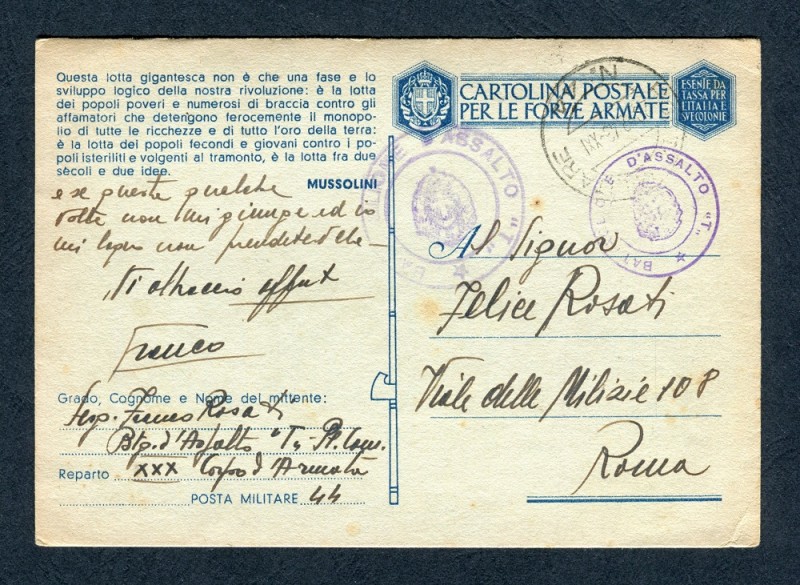 Questa lotta gigantesca non è che una fase e lo
sviluppo logico della nostra rivoluzione: è la lotta
dei popoli poveri e numerosi di braccia contro gli
affamatori che detengono ferocemente il monopo-
lio di tutte le ricchezze e di tutto l'oro della terra:
è la lotta dei popoli fecondi e giovani contro i po-
poli isteriliti e volgenti al tramonto, è la lotta fra due
sècoli e due idee.
MUSSOLINI
e se questa qualche
volta non mi giunge ed io
mi lagno non
Ti abbraccio
Franco
Grado, Cognome e Nome del mittente:
Serg. Franco Rosati
Btg. d'Assalto "T"
Reparto XXX Corpo d'Armata
POSTA MILITARE 44
CARTOLINA POSTALE
PER LE FORZE ARMATE
ESENTE DA
TASSA PER
L'ITALIA E
SUE COLONIE
D'ASSALTO "T"
BATTAGLIONE D'ASSALTO "T"
Al Signor
Felice Rosati
Viale delle Milizie 108
Roma